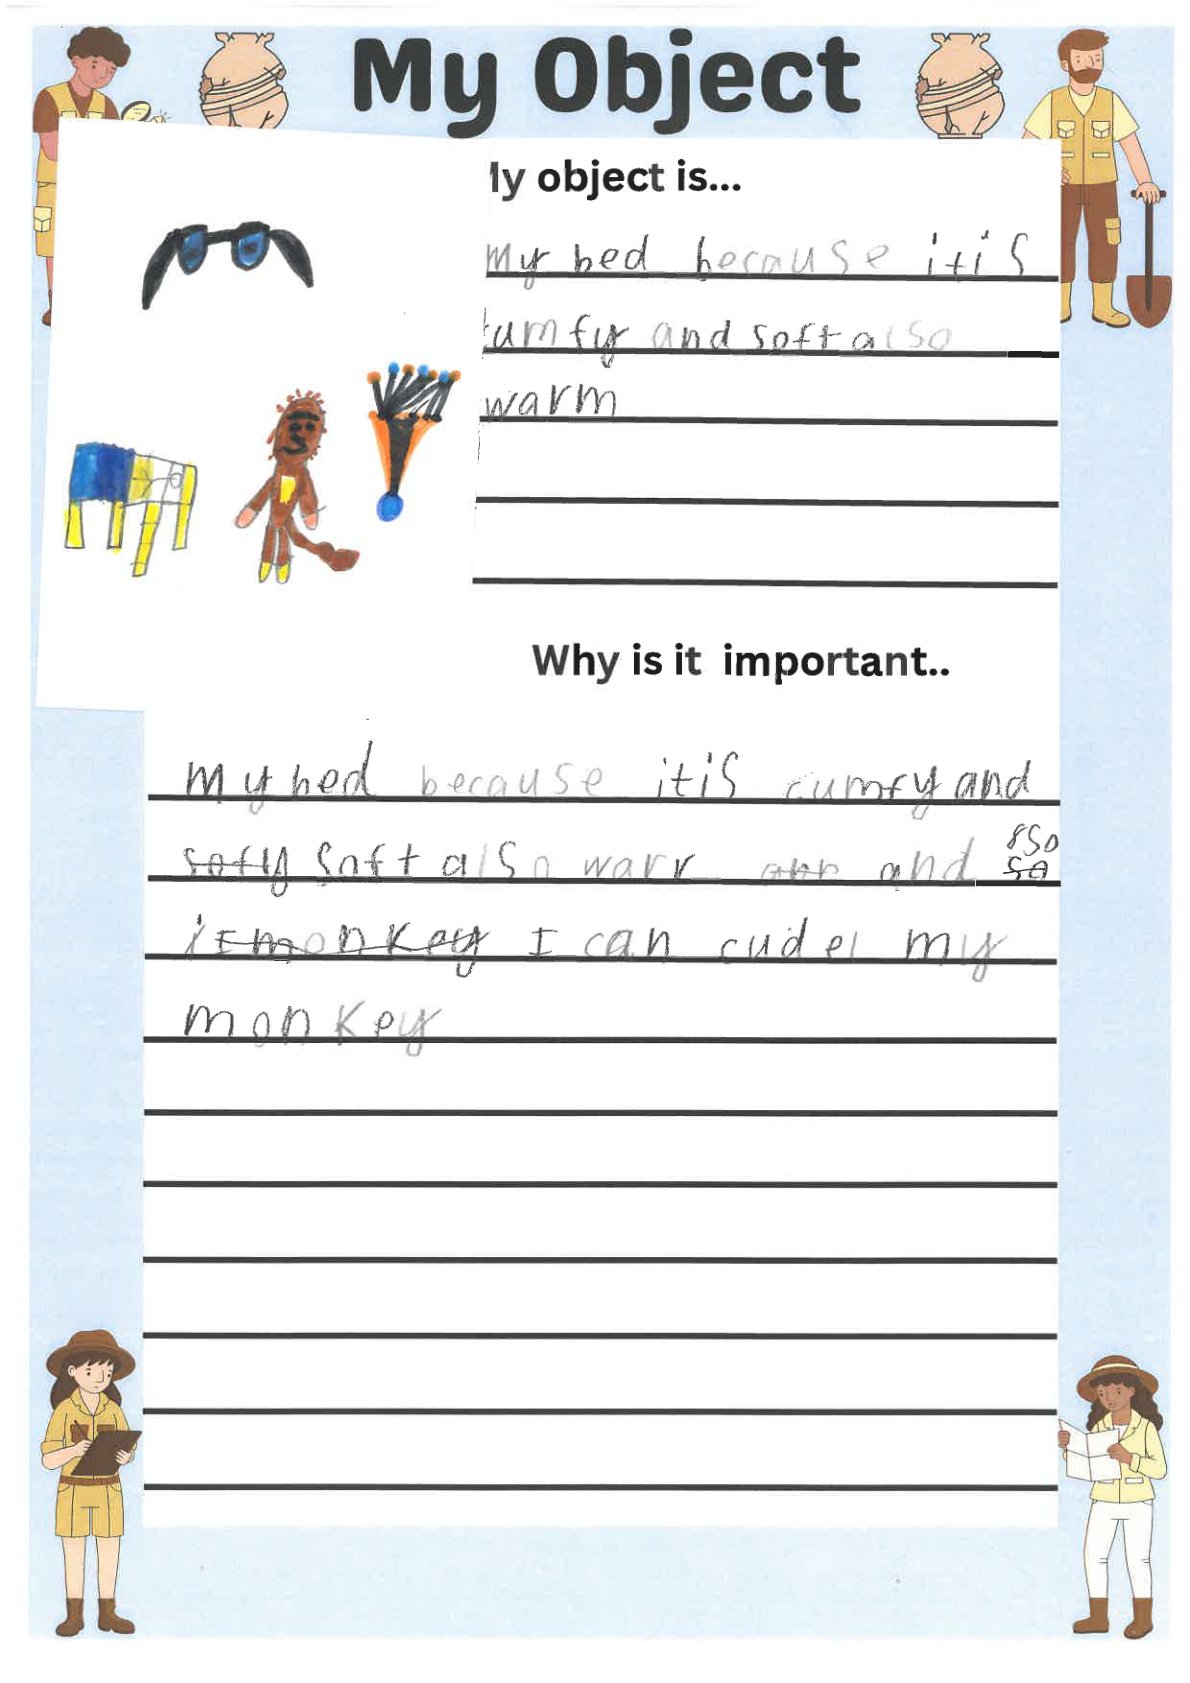 My Object
My object is...
My bed because it is
cumfy and soft also
warm
Why is it important..
My bed because it is cumfy and
sofly soft also warr and so
I monkey I can cudel my
monkey